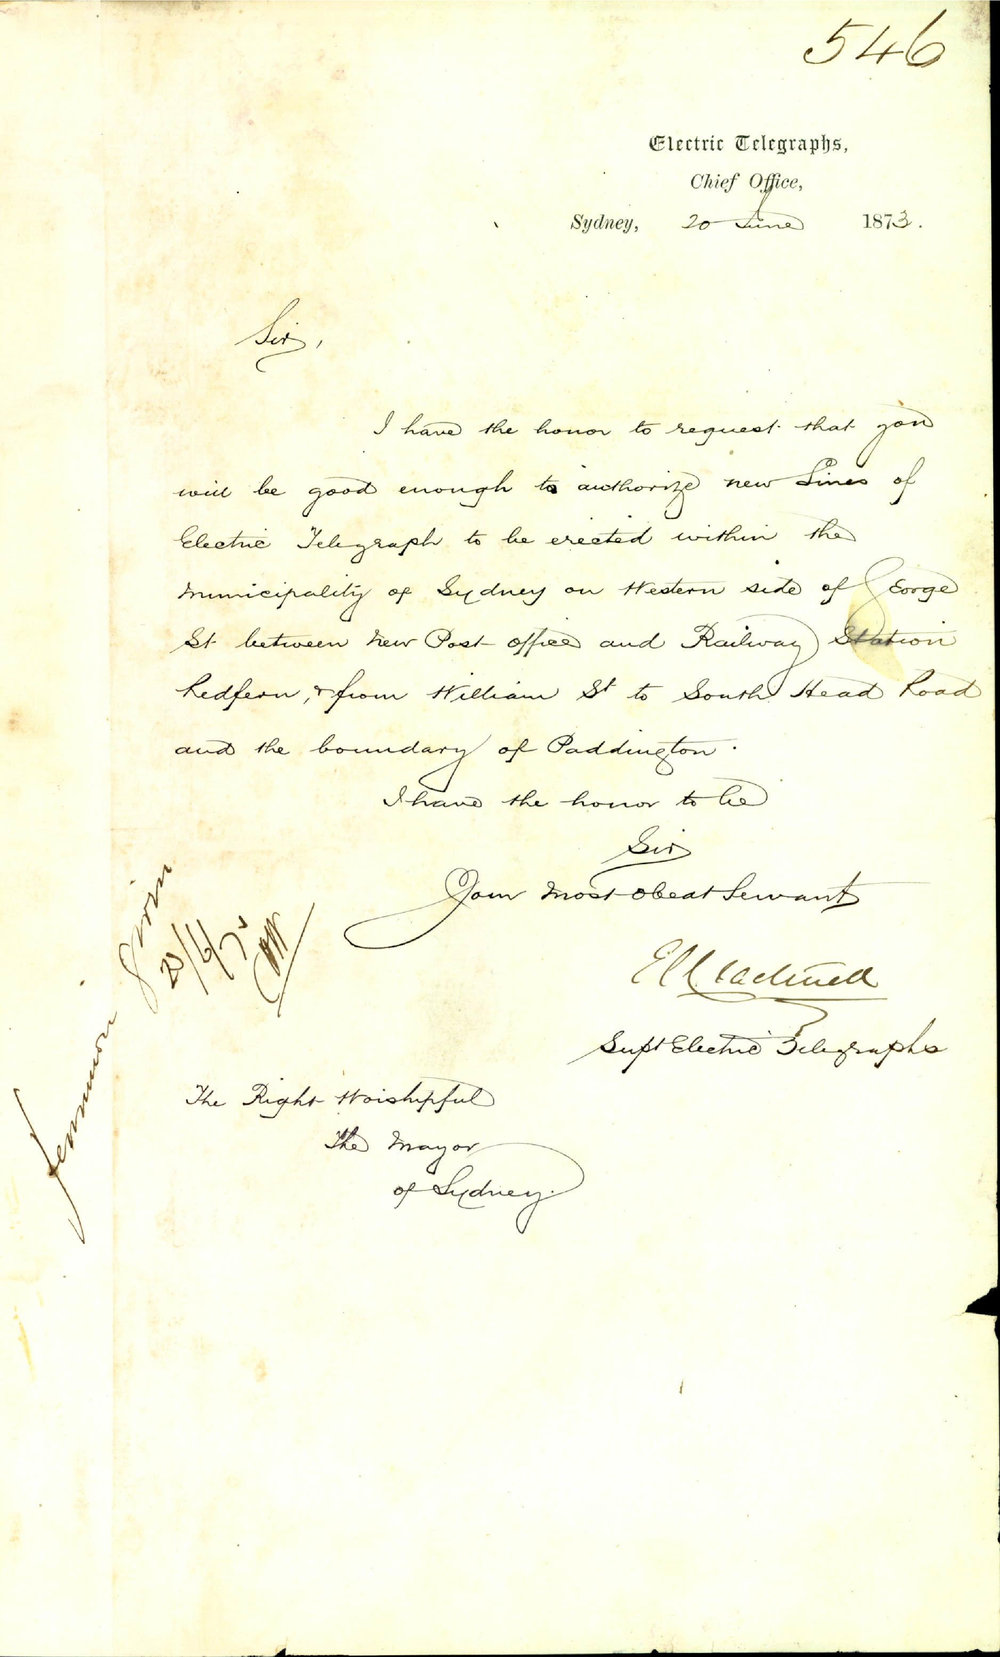 546
Electric Telegraphs,
Chief Office,
Sydney, 20 June 1873.
Sir,
I have the honor to request that you
will be good enough to authorize new Lines of
Electric Telegraph to be erected within the
Municipality of Sydney on Western side of George
St between New Post office and Railway Station
Redfern, & from William St to South Head Road
and the boundary of Paddington.
I have the honor to be
Sir
Your most obedt Servant
E C Cracknell
Supt Electric Telegraphs
The Right Worshipful
The Mayor
of Sydney.
Permission given